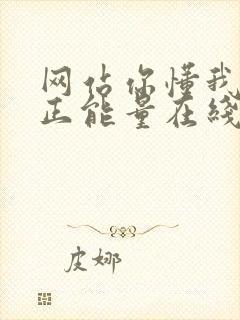 网站你懂我
正能量在线
皮娜